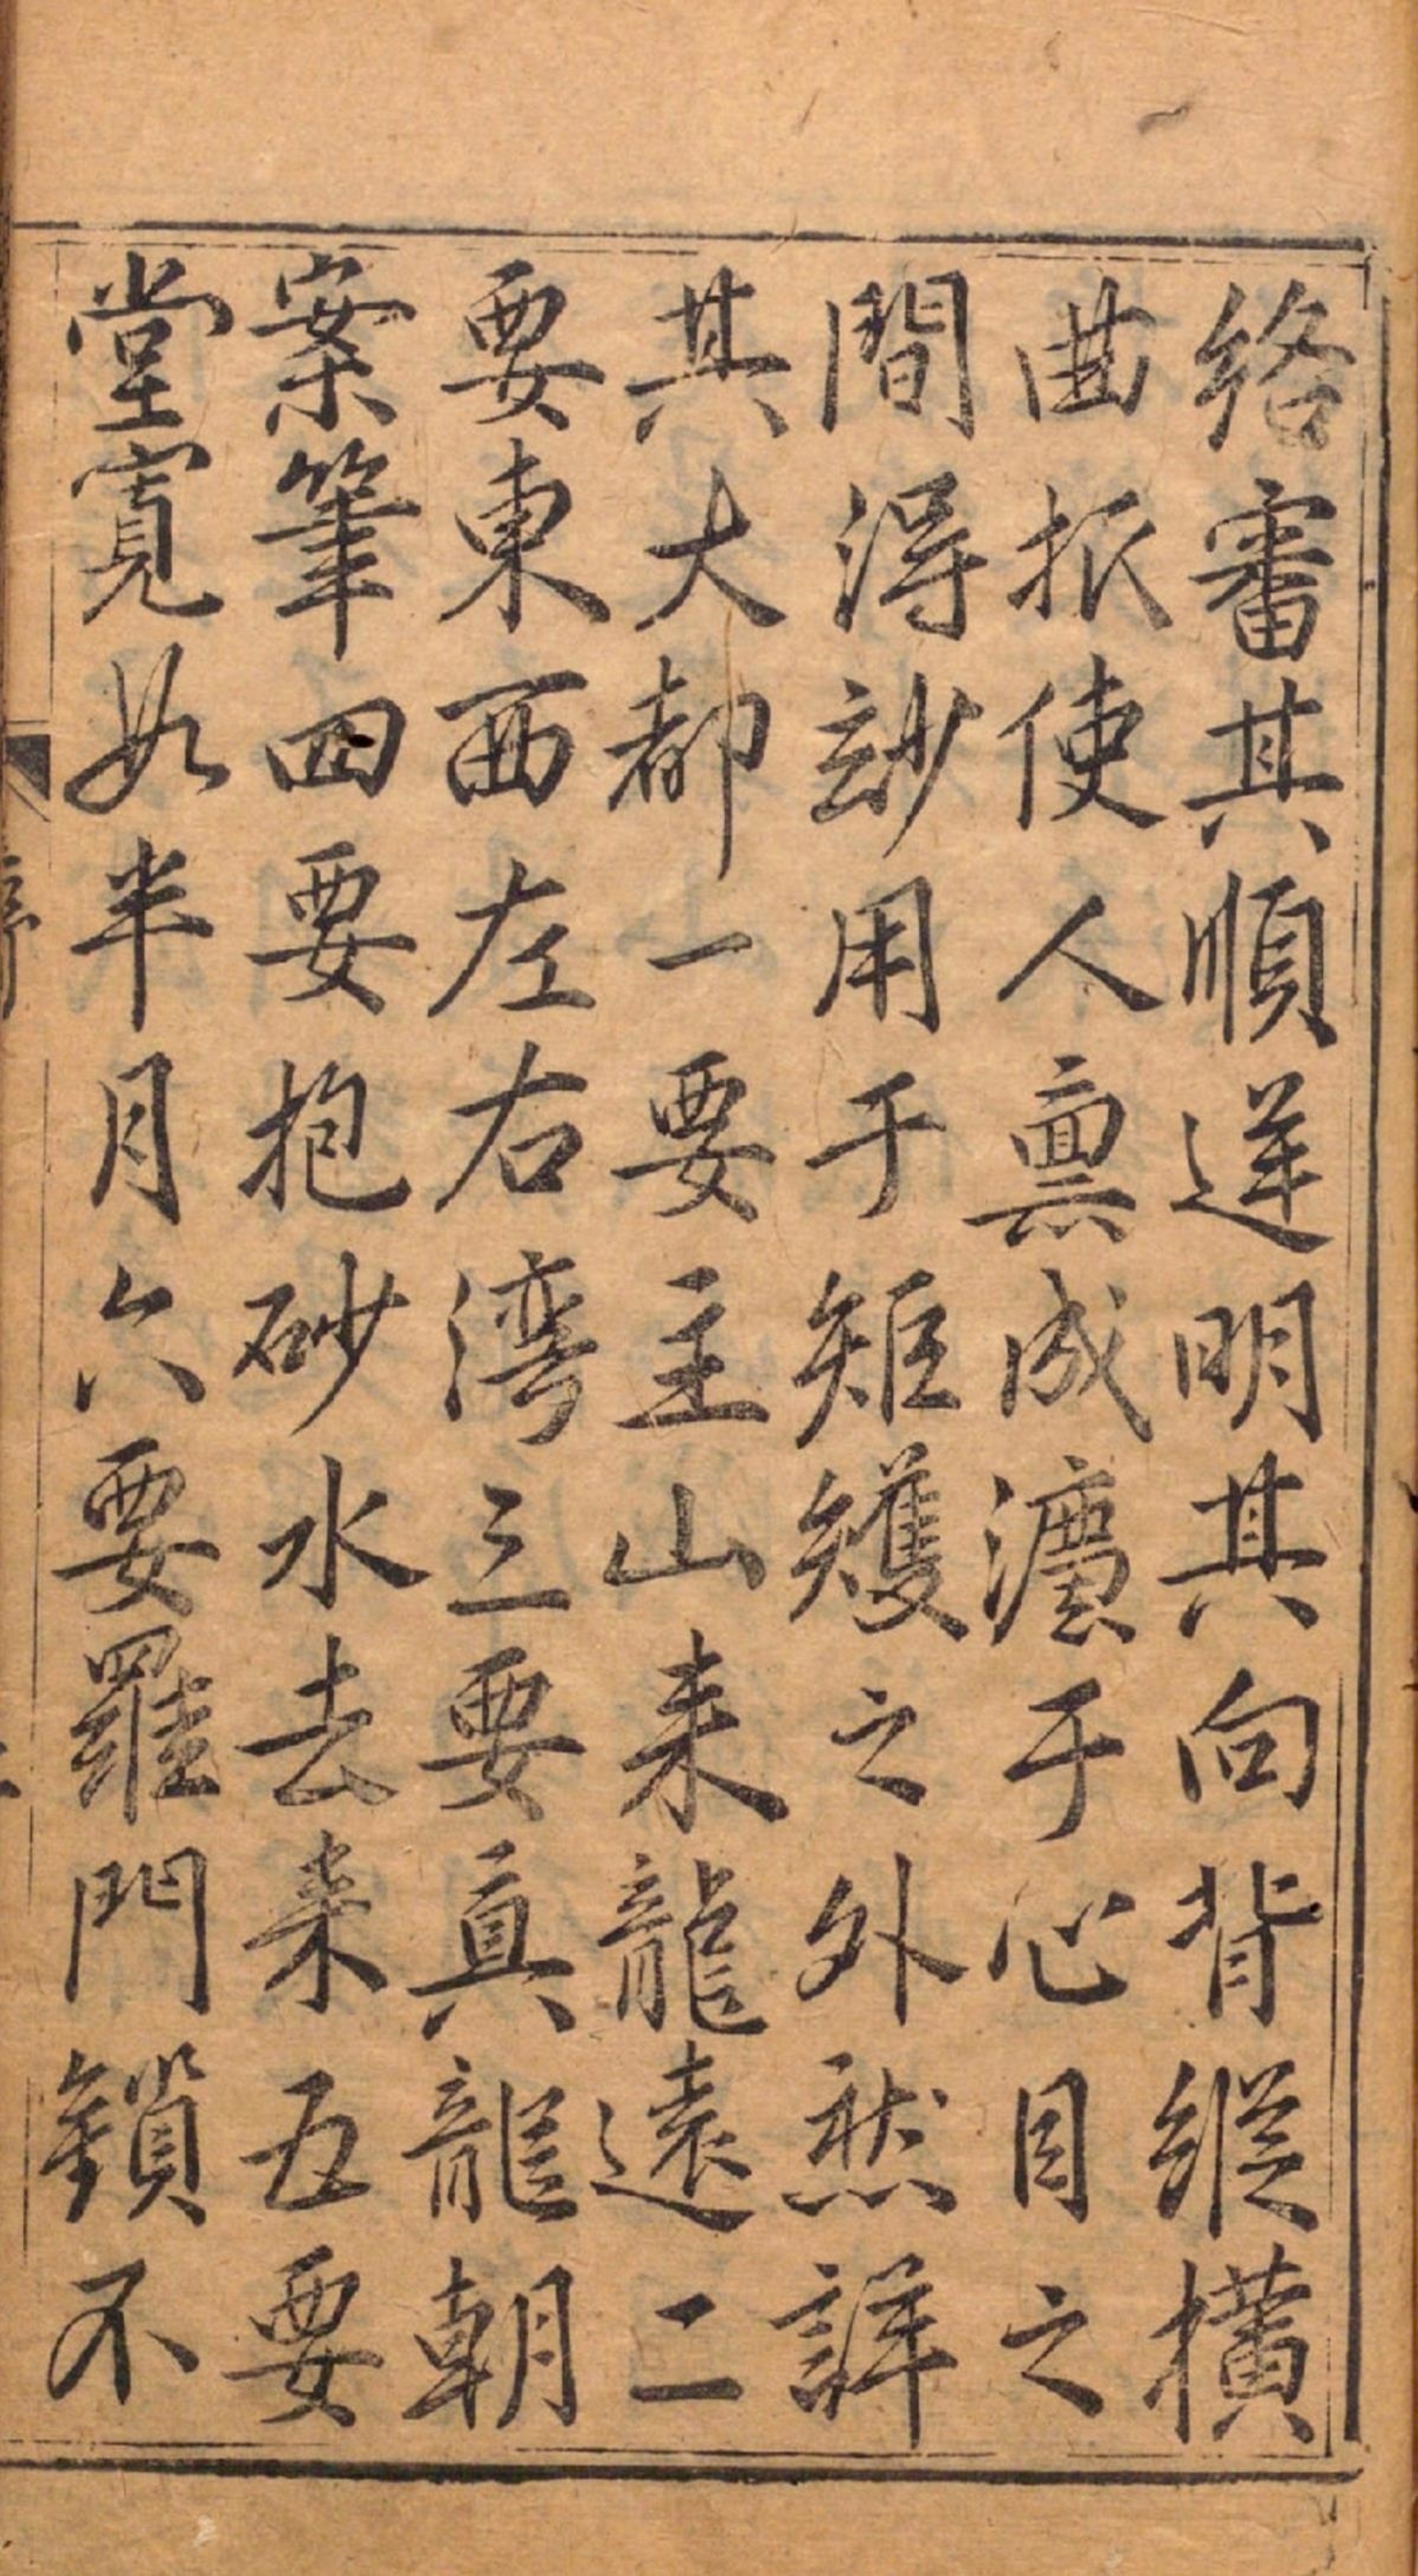 絡審其順逆明其向背縱橫
曲折使人稟成灋于心目之
間得玅用于矩矱之外然詳
其大都一要主山来龍遠二
要東西左右湾三要真龍朝
案筆四要抱砂水去来五要
堂寬如半月六要羅門鎖不
序